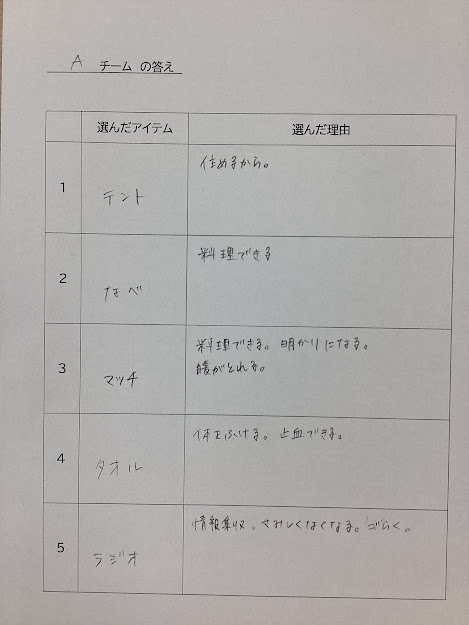 A チーム の答え
選んだアイテム 選んだ理由
1 テント 住めるから。
2 なべ 料理できる
3 マッチ 料理できる。明かりになる。
暖がとれる。
4 タオル 体をふける。止血できる。
5 ラジオ 情報集収。さみしくなくなる。ごらく。